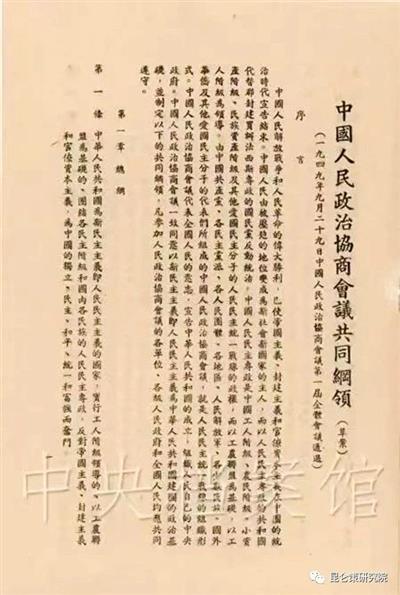 中國人民政治協商會議共同綱領(草案)
(一九四九年九月二十九日中國人民政治協商會議第一屆全體會議通過)
序言
中國人民解放戰爭和人民革命的偉大勝利,已使帝國主義、封建主義和官僚資本主義在中國的統
治時代宣告結束。中國人民由被壓迫的地位變成為新社會新國家的主人,而以人民民主專政的共和國
代替那封建買辦法西斯專政的國民黨反動統治。中國人民民主專政是中國工人階級、農民階級、小資
產階級、民族資產階級及其他愛國民主分子的人民民主統一戰線的政權,而以工農聯盟為基礎,以工
人階級為領導。由中國共產黨、各民主黨派、各人民團體、各地區、人民解放軍、各少數民族、國外
華僑及其他愛國民主分子的代表們所組成的中國人民政治協商會議,就是人民民主統一戰線的組織形
式。中國人民政治協商會議代表全國人民的意志,宣告中華人民共和國的成立,組織人民自己的中央
政府。中國人民政治協商會議一致同意以新民主主義即人民民主主義為中華人民共和國建國的政治基
礎,並制定以下的共同綱領,凡參加人民政治協商會議的各單位、各級人民政府和全國人民均應共同
遵守。
第一章 總綱
第一條 中華人民共和國為新民主主義即人民民主主義的國家,實行工人階級領導的、以工農聯
盟為基礎的、團結各民主階級和國內各民族的人民民主專政,反對帝國主義、封建主義
和官僚資本主義,為中國的獨立、民主、和平、統一和富強而奮鬥。
一
中央档案馆
昆仑策研究院